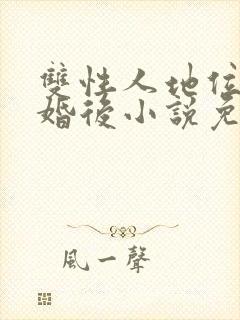 雙性人地位
婚後小說免
風一聲